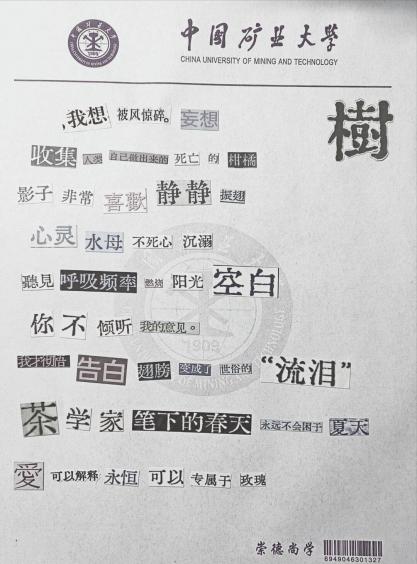 中国矿业大学
CHINA UNIVERSITY OF MINING AND TECHNOLOGY
樹
,我想 被风惊碎。 妄想
收集 人类 自己做出来的 死亡 的 柑橘
影子 非常 喜歡 静静 振翅
心灵 水母 不死心 沉溺
聽見 呼吸频率 燃烧 阳光 空白
你 不 倾听 我的意见。
我才彻悟 告白 翅膀 变成了 世俗的 “流泪”
茶 学 家 笔下的春天 永远不会困于 夏天
愛 可以解释 永恒 可以 专属于 玫瑰
1909
崇德尚学
6949046301327